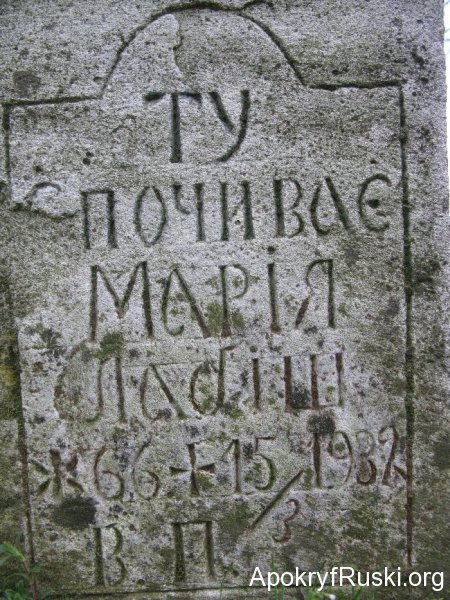 ТУ
СПОЧИВАЄ
МАРІЯ
Лабіш
* 66 + 15/3 1932
В П
ApokryfRuski.org